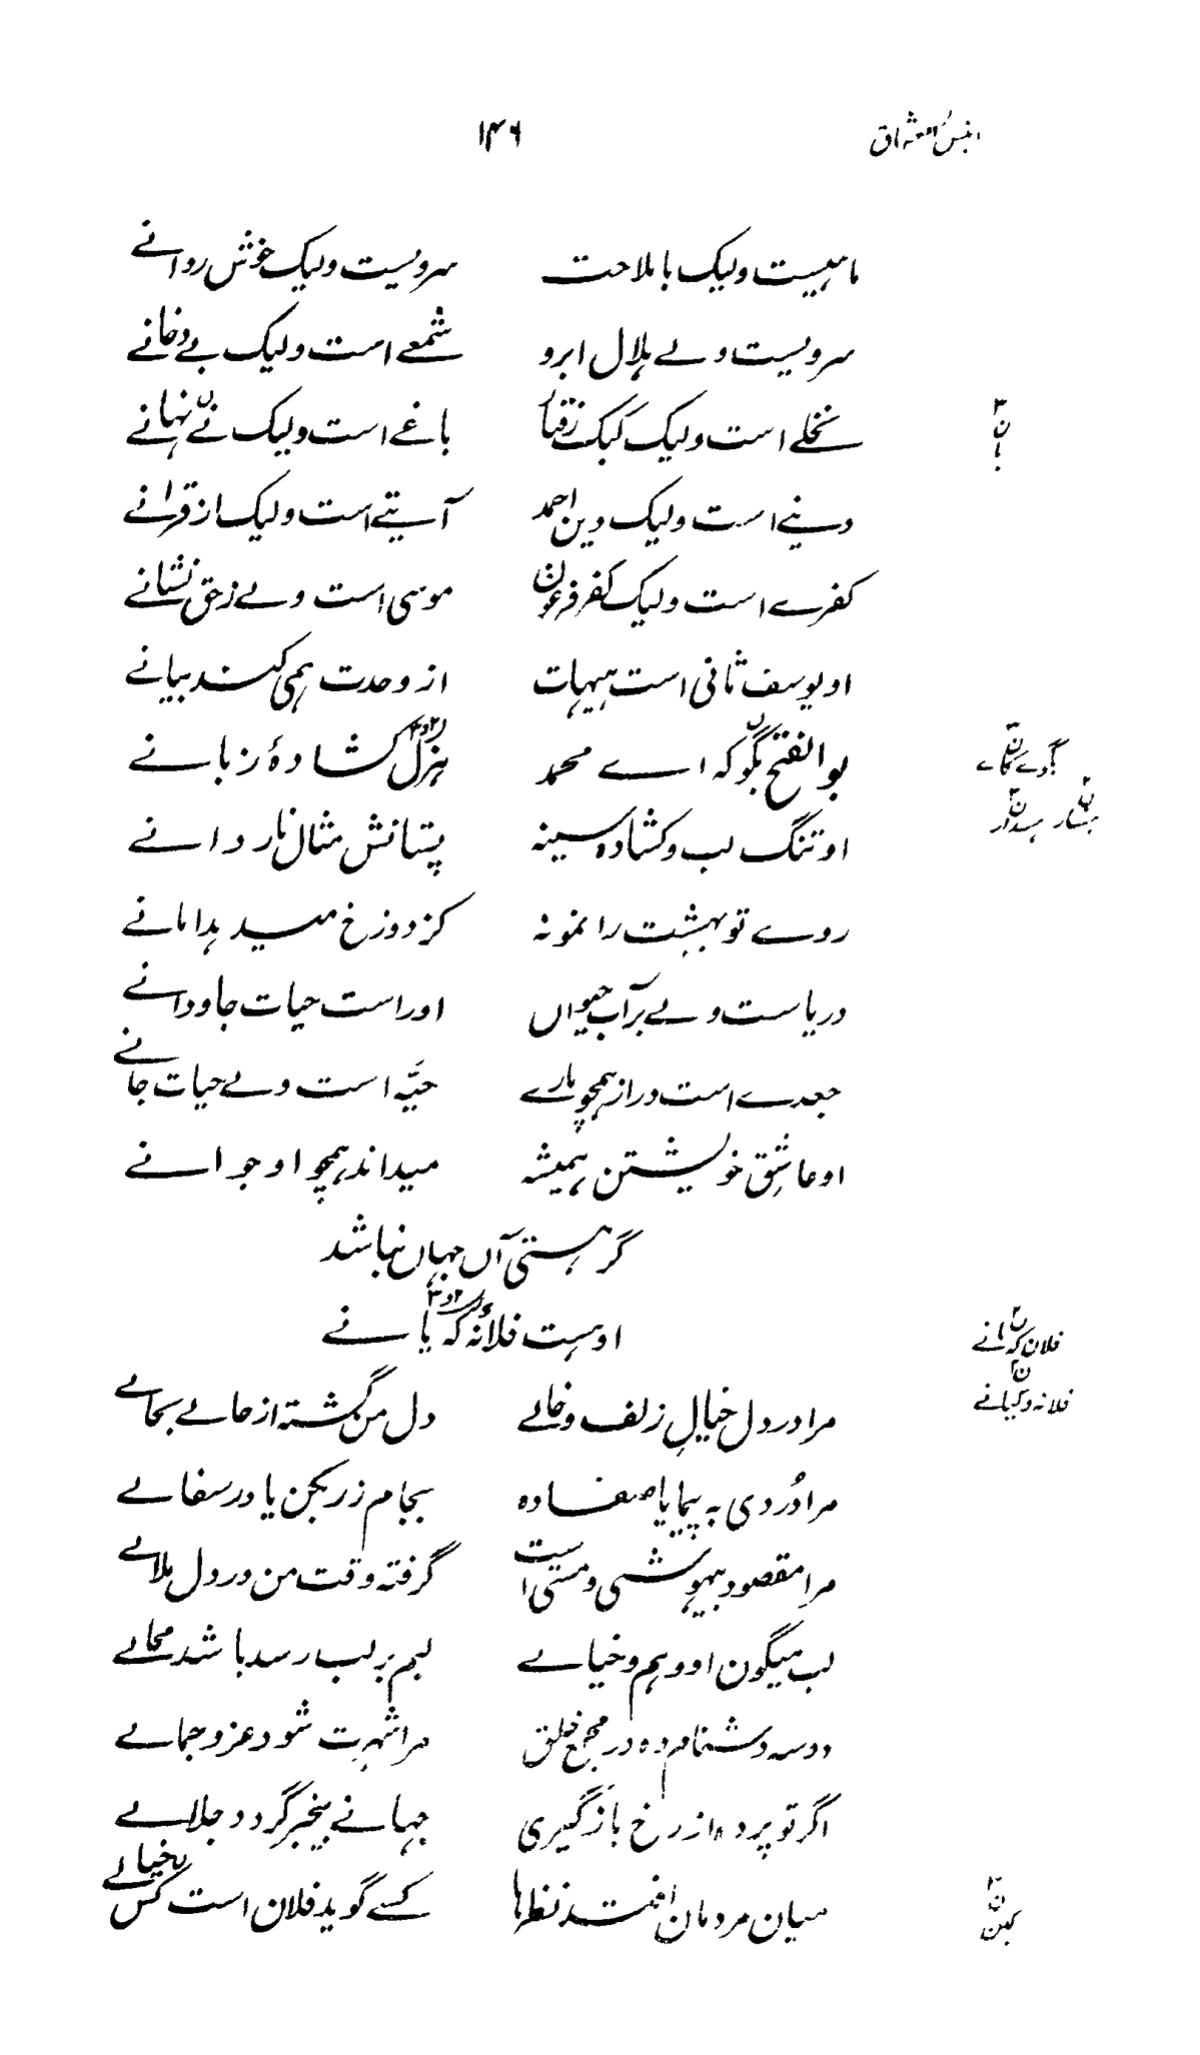 انیسُ العشاق ۱۴۶
ماہیست ولیک با ملاحت سرویست ولیک خوش روانے
سرویست ولے ہلال ابرو شمعے است ولیک بے دخانے
نخلے است ولیک کبک رفتار باغے است ولیک نے نہانے
دینے است ولیک دین احمد آیتے است ولیک از قرانے
کفرے است ولیک کفر فرعون موسی است ولے زحق نشانے
او یوسف ثانی است ہیہات از وحدت ہمی کند بیانے
بوالفتح بگو کہ اے محمد ہزل کشادۂ زبانے
او تنگ لب و کشادہ سینہ پستانش مثال نار دانے
روے تو بہشت را نمونہ کز دوزخ میدہد امانے
دریاست ولے بر آب حیواں اوراست حیات جاودانے
جعدے است دراز ہمچو مارے حیّہ است ولے حیات جانے
او عاشق خویشتن ہمیشہ میداند ہمچو او جوانے
گر ہستی آں جہاں نباشد
اوست فلانہ کہ یا نے
فلان کہ مانے
فلانہ و کیانے
مرا در دل خیالِ زلف و خالے دل من گشتہ از حالے بحالے
مرا دُردی بہ پیما یا صفا دہ بجام زر بکن یا در سفالے
مرا مقصود بیہوشی و مستی است گرفتہ وقت من در دل ملالے
لب میگون او وہم و خیالے لبم بر لب رسد باشد محالے
دوسہ دشنام دہ در مجمع خلق مرا شہرت شود عز و جمالے
اگر تو پردہ از رخ باز گیری جہانے بیخبر گردد جلالے
میان مردمان افتد نظرہا کسے گوید فلان است کس بخیالے